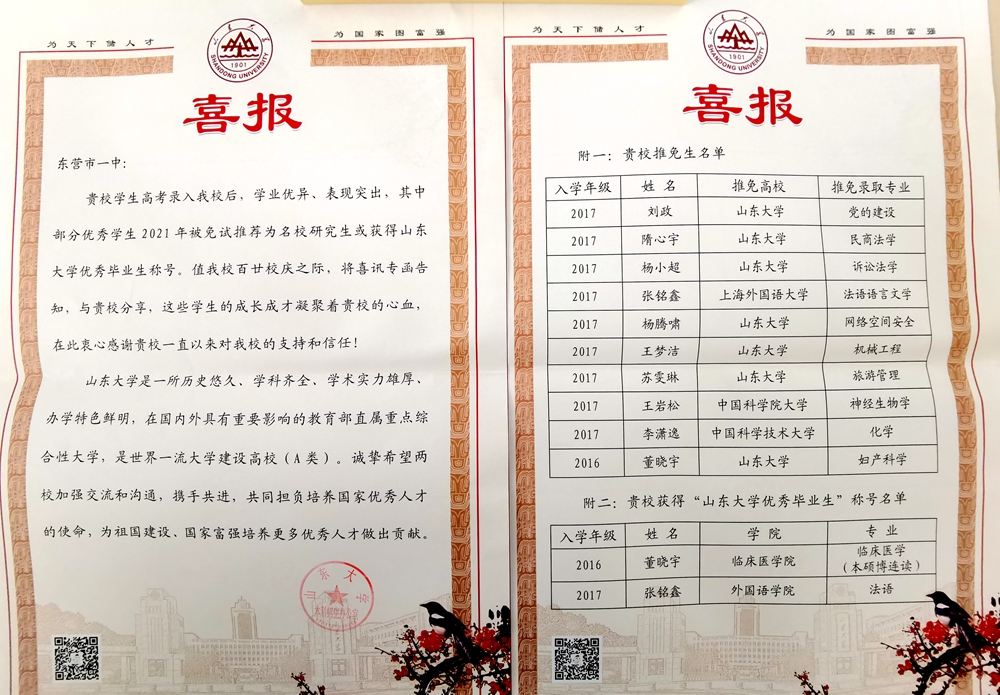 为天下储人才
为国家图富强
SHANDONG UNIVERSITY
1901
喜报
东营市一中：
贵校学生高考录入我校后，学业优异、表现突出，其中
部分优秀学生2021年被免试推荐为名校研究生或获得山东
大学优秀毕业生称号。值我校百廿校庆之际，将喜讯专函告
知，与贵校分享，这些学生的成长成才凝聚着贵校的心血，
在此衷心感谢贵校一直以来对我校的支持和信任！
山东大学是一所历史悠久、学科齐全、学术实力雄厚、
办学特色鲜明，在国内外具有重要影响的教育部直属重点综
合性大学，是世界一流大学建设高校（A类）。诚挚希望两
校加强交流和沟通，携手共进，共同担负培养国家优秀人才
的使命，为祖国建设、国家富强培养更多优秀人才做出贡献。
山东大学
为天下储人才
为国家图富强
SHANDONG UNIVERSITY
1901
喜报
附一：贵校推免生名单
入学年级 姓名 推免高校 推免录取专业
2017 刘政 山东大学 党的建设
2017 隋心宇 山东大学 民商法学
2017 杨小超 山东大学 诉讼法学
2017 张铭鑫 上海外国语大学 法语语言文学
2017 杨腾啸 山东大学 网络空间安全
2017 王梦洁 山东大学 机械工程
2017 苏雯琳 山东大学 旅游管理
2017 王岩松 中国科学院大学 神经生物学
2017 李潇逸 中国科学技术大学 化学
2016 董晓宇 山东大学 妇产科学
附二：贵校获得“山东大学优秀毕业生”称号名单
入学年级 姓名 学院 专业
2016 董晓宇 临床医学院 临床医学
（本硕博连读）
2017 张铭鑫 外国语学院 法语